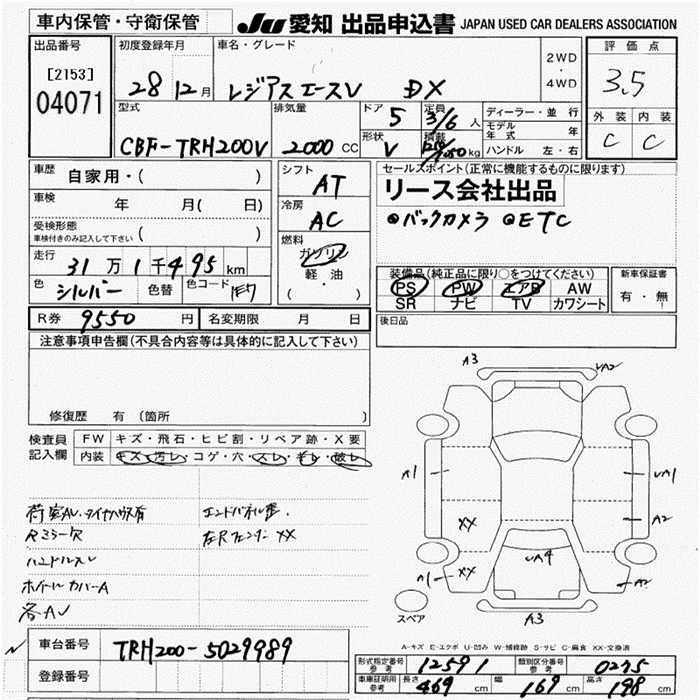 車内保管・守衛保管
JU 愛知 出品申込書 JAPAN USED CAR DEALERS ASSOCIATION
出品番号
[2153]
04071
初度登録年月
28 12月
車名・グレード
レジアスエースV DX
2WD
・
4WD
評価点
3.5
外装 内装
C C
型式
CBF-TRH200V
排気量
2000 CC
ドア 5
形状 V
定員 3/6 人
積載 kg
ディーラー・並行
モデル年式 年
ハンドル 左・右
車歴 自家用・( )
車検 年 月( 日)
受検形態
車検付きのみ記入して下さい ( )
走行 31万1千495km
色 シルバー 色替 色コード 1E7
シフト AT
冷房 AC
燃料
ガソリン
軽・油
( ・ )
セールスポイント(正常に機能するものに限ります)
リース会社出品
◎バックカメラ ◎ETC
装備品(純正品に限り○をつけてください)
PS PW エアB AW
SR ナビ TV カワシート
新車保証書
有・無
R券 9550円 名変期限 月 日
後日品
注意事項申告欄(不具合内容等は具体的に記入して下さい)
修復歴 有(箇所 )
検査員記入欄
FW キズ・飛石・ヒビ割・リペア跡・X要
内装 キズ・汚レ・コゲ・穴・スレ・キレ・破レ
荷室AU・タイヤハウス
エンドパネル歪.
Rミラー欠
左Rフェンダー XX
ハンドルスレ
ホイールカバーA
各AU
A3
UA2
A1
UA1
XX
A2
UA4
A1 XX
A2
スペア
A3
A-キズ E-エクボ U-凹み W-補修跡 S-サビ C-腐食 XX-交換済
車台番号 TRH200-5029989
登録番号
形式指定番号 参考 12591 類別区分番号 参考 0275
車庫証明用 参考 長さ 469 cm 幅 169 cm 高さ 198 cm